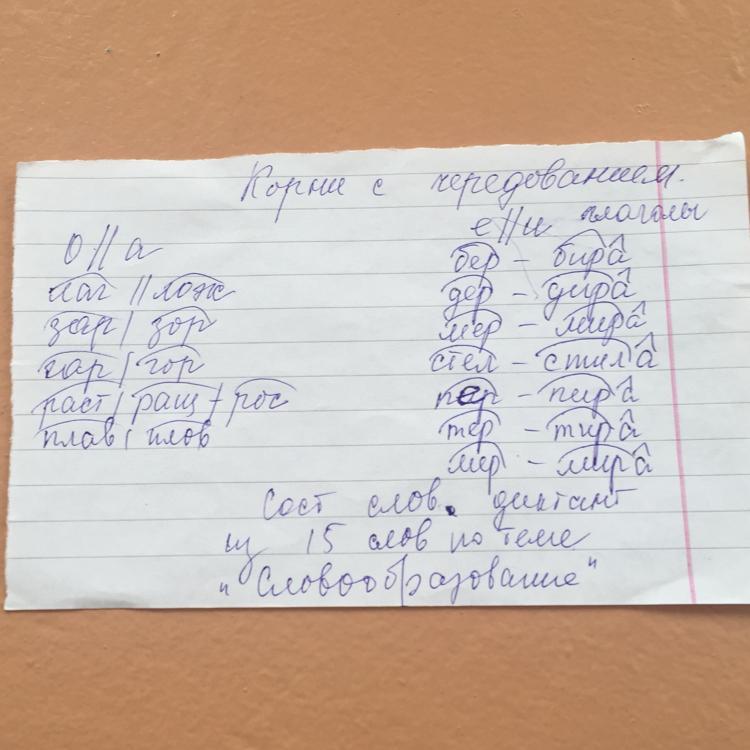 Корни с чередованием.
о//а
лаг // лож
зар / зор
гар / гор
раст / ращ + рос
плав / плов
е//и глаголы
бер - бира
дер - дира
мер - мира
стел - стила
пер - пира
тер - тира
мер - мира
Сост слов. диктант
из 15 слов по теме
"Словообразование"